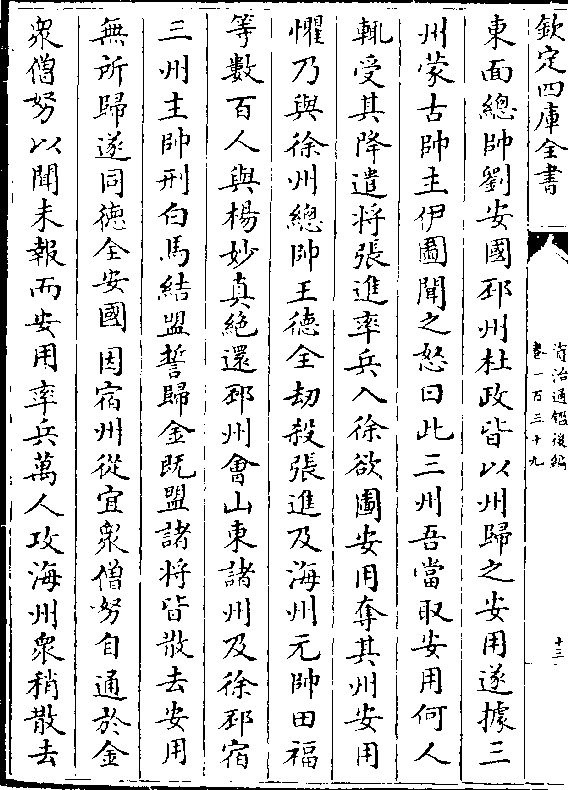 欽定四庫全書
資治通鑑後編
卷一百三十九
十三
東面總帥劉安國邳州杜政皆以州歸之安用遂據三
州蒙古帥主伊圖聞之怒曰此三州吾當取安用何人
輒受其降遣将張進率兵入徐欲圖安用奪其州安用
懼乃與徐州總帥王德全劫殺張進及海州元帥田福
等數百人與楊妙真絶還邳州會山東諸州及徐邳宿
三州主帥刑白馬結盟誓歸金既盟諸将皆散去安用
無所歸遂同德全安國因宿州從宜衆僧努自通於金
衆僧努以聞未報而安用率兵萬人攻海州衆稍散去